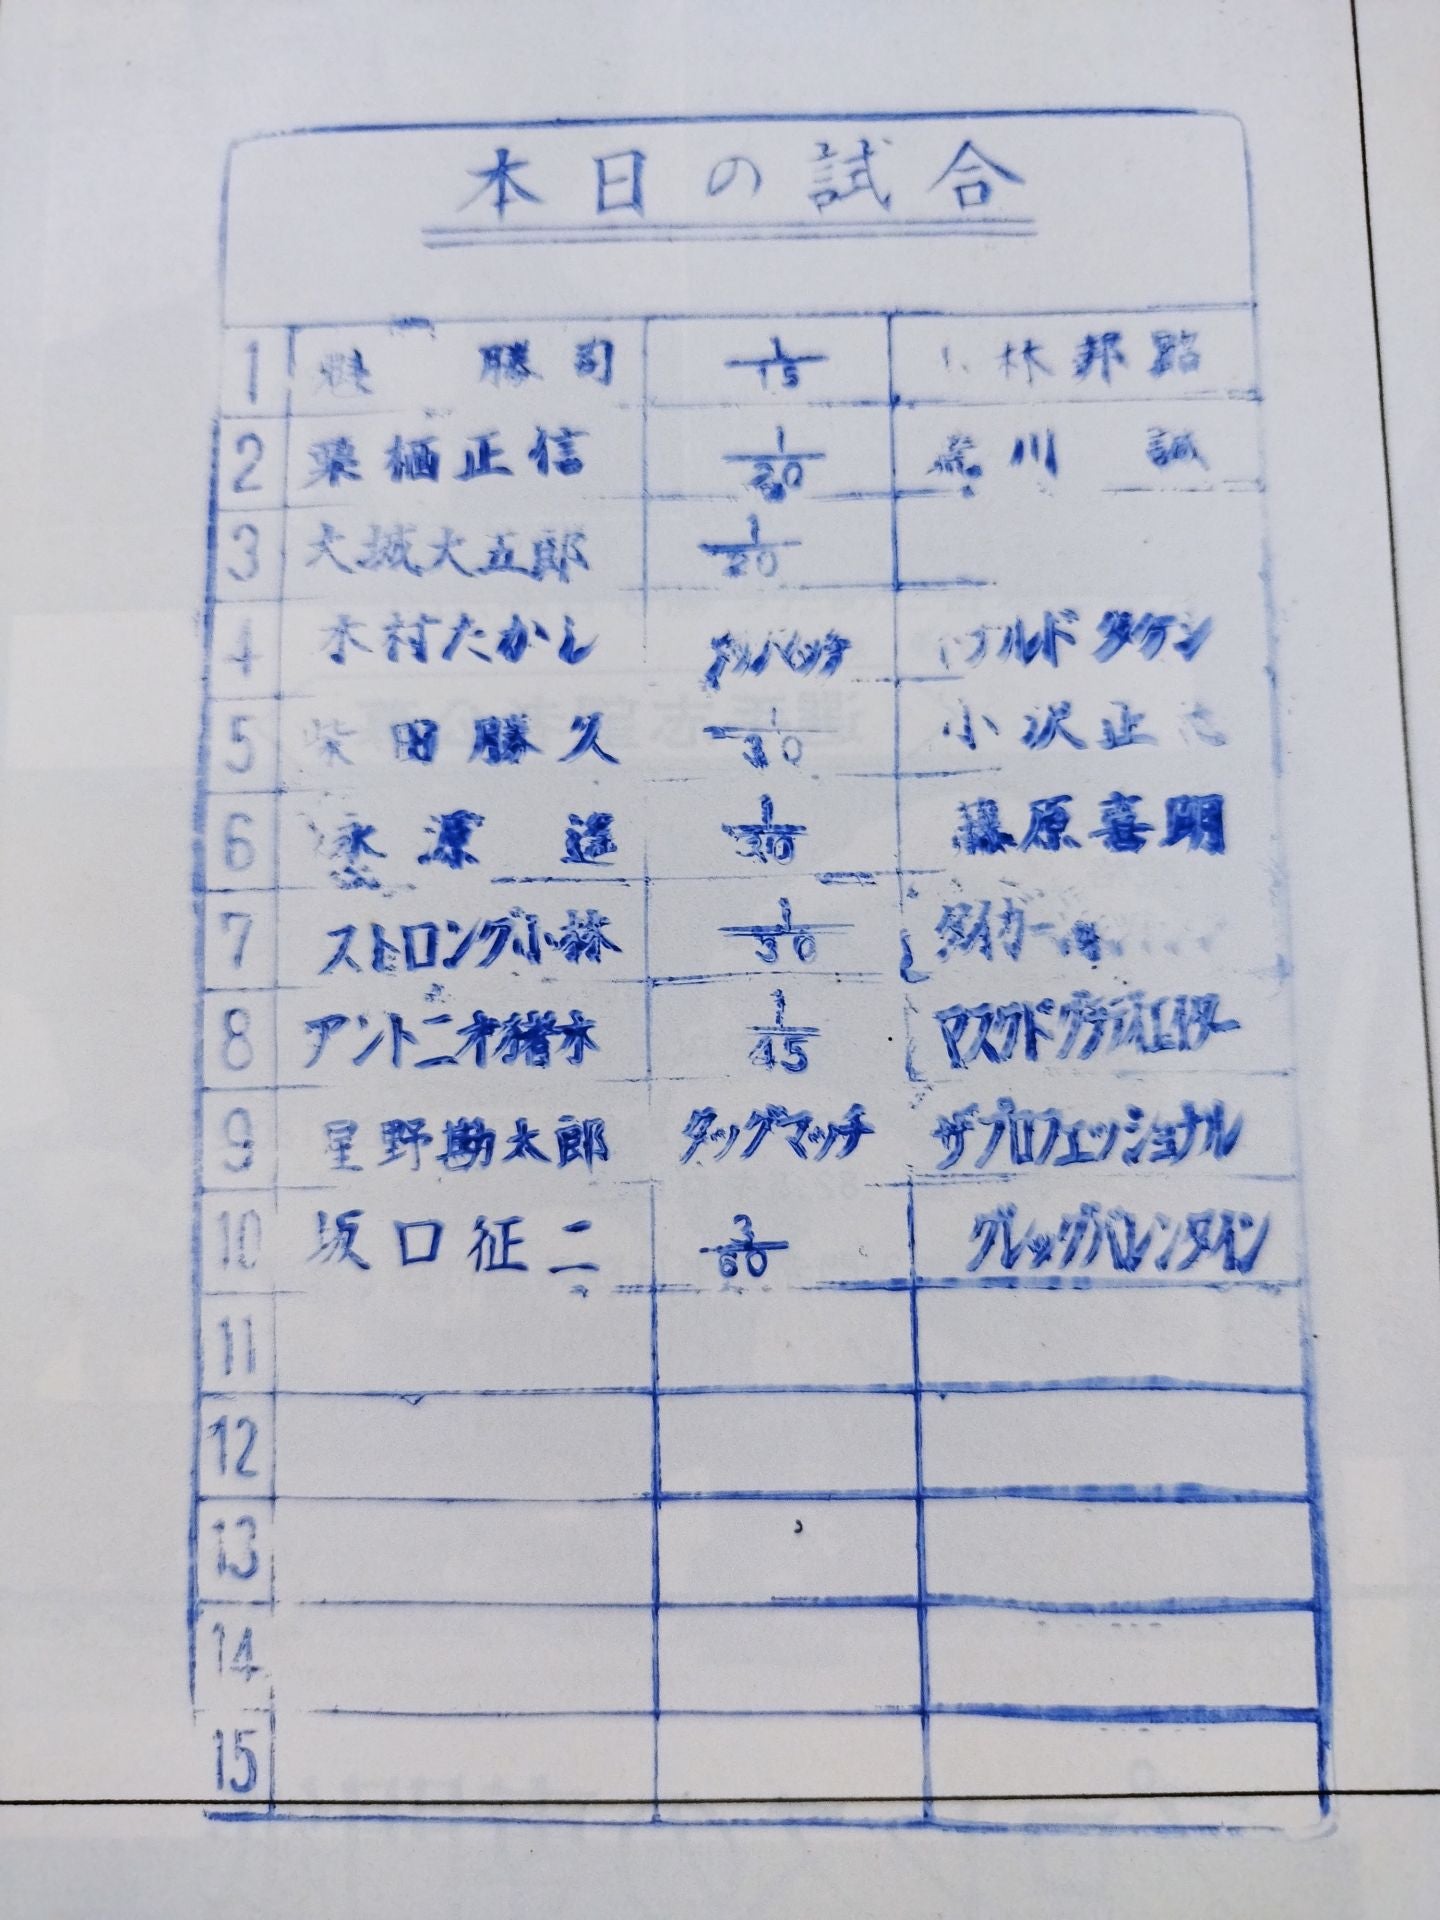 本日の試合
1 魁 勝司 1/15 林邦
2 栗栖正信 1/20 荒川 誠
3 大城大五郎 1/20
4 木村たかし タッグマッチ ドナルドタケシ
5 柴田勝久 1/30 小沢正志
6 永源 遙 1/30 藤原喜明
7 ストロング小林 1/30 タイガー
8 アントニオ猪木 1/45 マスクドグラディエイター
9 星野勘太郎 タッグマッチ ザプロフェッショナル
10 坂口征二 3/60 グレッグバレンタイン
11
12
13
14
15